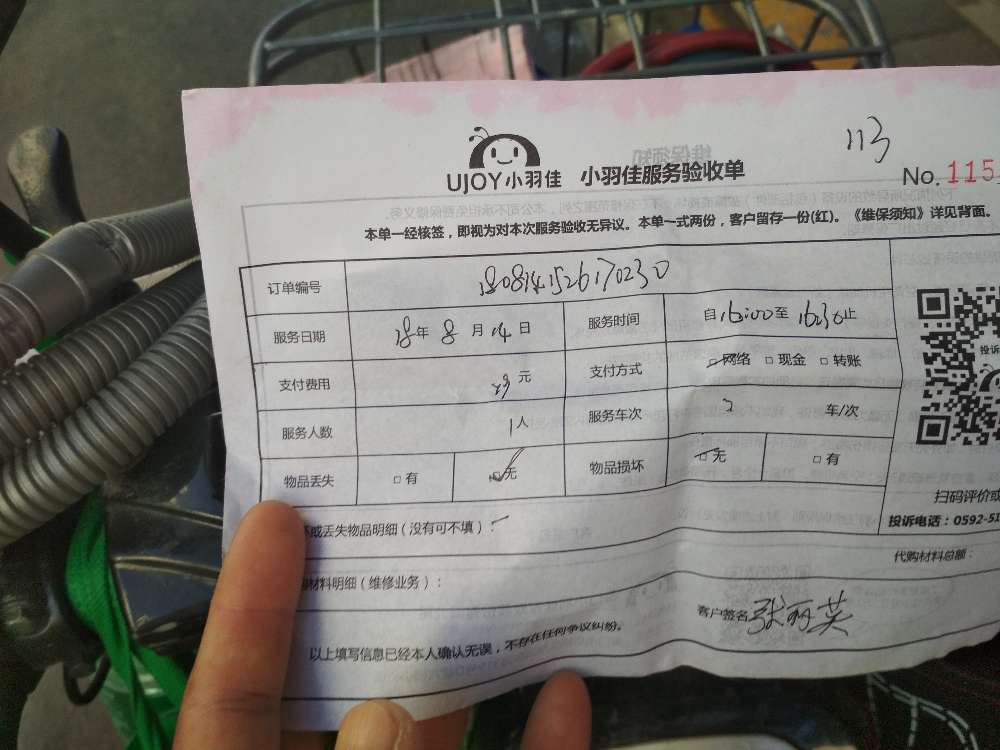 113
UJOY小羽佳 小羽佳服务验收单
No. 115
本单一经核签，即视为对本次服务验收无异议。本单一式两份，客户留存一份(红)。《维保须知》详见背面。
订单编号 1808141526170230
服务日期 18年 8 月 14 日 服务时间 自16:00至16:30止
支付费用 元 支付方式 □网络 □现金 □转账
服务人数 1人 服务车次 车/次
物品丢失 □有 □无 物品损坏 □无 □有
投诉
扫码评价或
或丢失物品明细（没有可不填）：
投诉电话：0592-5
代购材料总额：
材料明细（维修业务）：
客户签名 张丽英
以上填写信息已经本人确认无误，不存在任何争议纠纷。